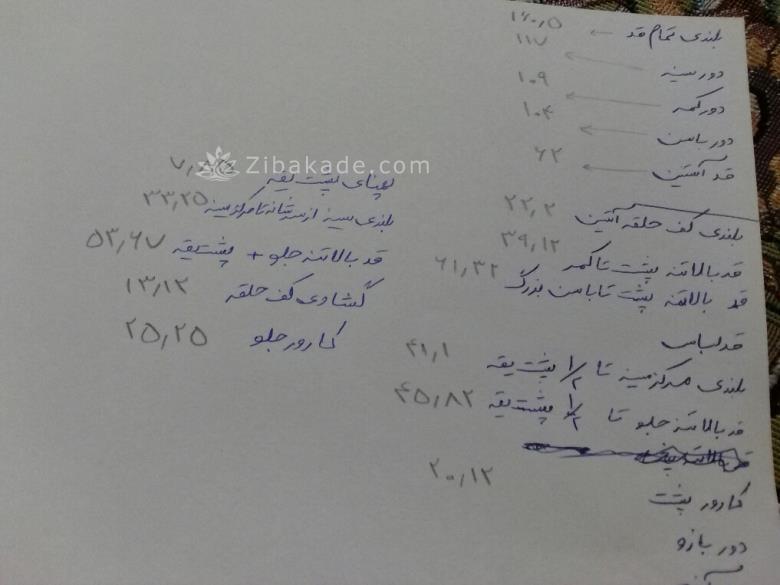 بلندی تمام قد ۱۶۰٫۵
دور سینه ۱۱۷
دور کمر ۱۰۹
دور باسن ۱۰۴
قد آستین ۶۲
بلندی کف حلقه آستین ۲۲٫۲
قد بالاتنه پشت تا کمر ۳۹٫۱۲
قد بالاتنه پشت تا باسن بزرگ ۶۱٫۳۲
قد لباس
بلندی مرکز سینه تا ۱/۲ پشت یقه ۴۱٫۱
قد بالاتنه جلو تا ۱/۲ پشت یقه ۴۵٫۸۲
کارور پشت ۲۰٫۱۲
دور بازو
پهنای پشت یقه
بلندی سینه از سر شانه تا مرکز سینه ۳۳٫۲۵
قد بالاتنه جلو + پشت یقه ۵۳٫۶۷
گشادی کف حلقه ۱۳٫۱۲
کارور جلو ۲۵٫۲۵
Zibakade.com